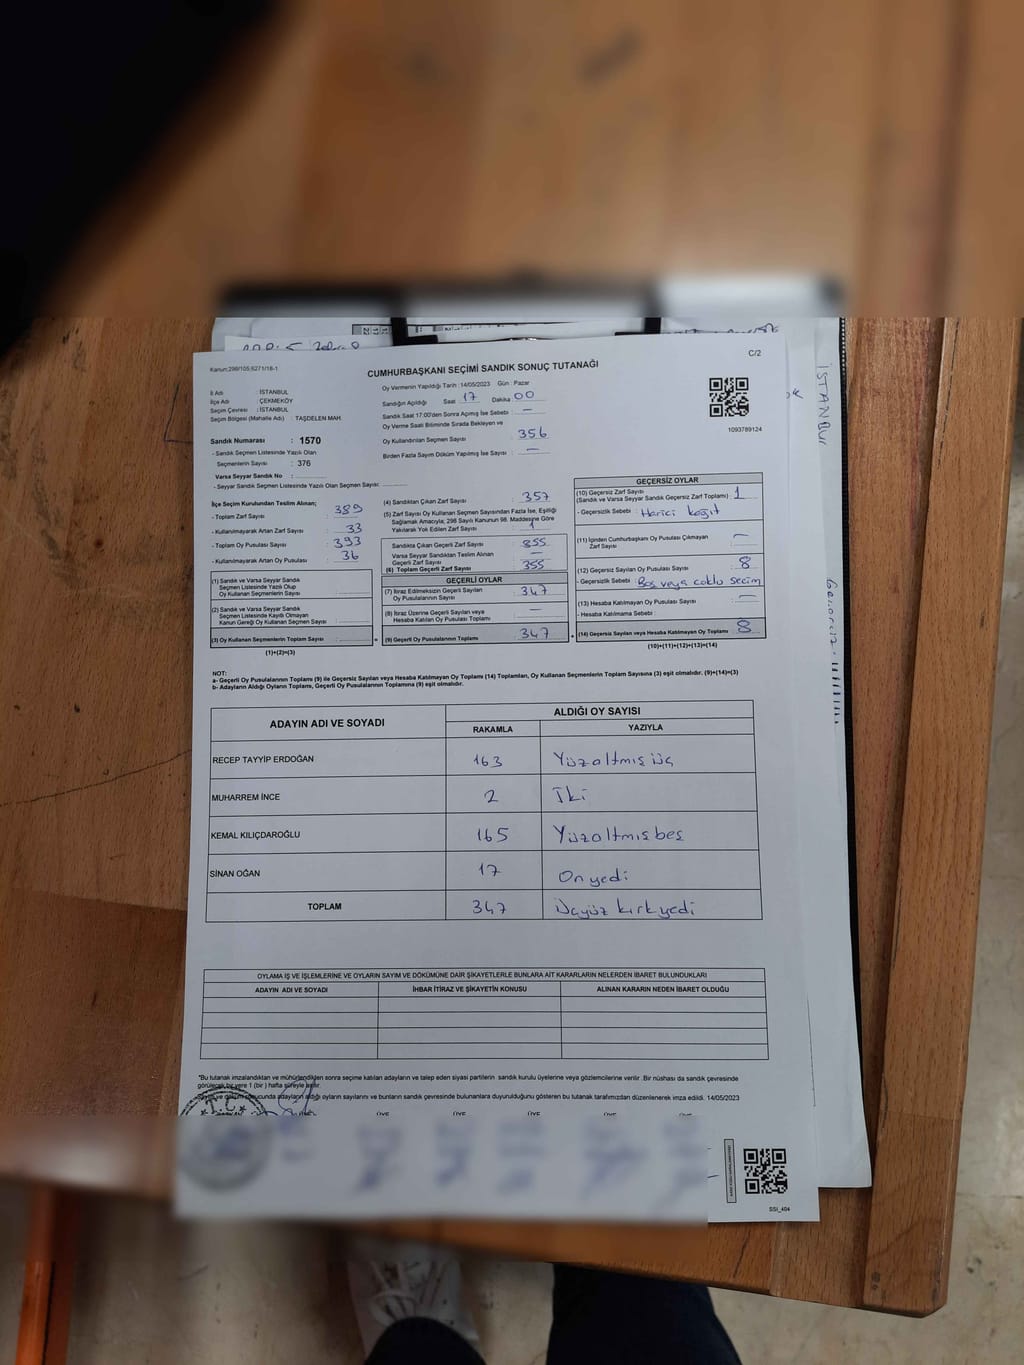 Kanun;298/105;6271/18-1
CUMHURBAŞKANI SEÇİMİ SANDIK SONUÇ TUTANAĞI
C/2
İl Adı : İSTANBUL
İlçe Adı : ÇEKMEKÖY
Seçim Çevresi : İSTANBUL
Seçim Bölgesi (Mahalle Adı) : TAŞDELEN MAH.
Sandık Numarası : 1570
- Sandık Seçmen Listesinde Yazılı Olan
Seçmenlerin Sayısı : 376
Varsa Seyyar Sandık No :
- Seyyar Sandık Seçmen Listesinde Yazılı Olan Seçmen Sayısı:
Oy Vermenin Yapıldığı Tarih : 14/05/2023 Gün : Pazar
Sandığın Açıldığı Saat 17 Dakika 00
Sandık Saat 17:00'den Sonra Açımış İse Sebebi : —
Oy Verme Saati Bitiminde Sırada Bekleyen ve
Oy Kullandırılan Seçmen Sayısı : 356
Birden Fazla Sayım Döküm Yapılmış İse Sayısı : —
1093789124
İlçe Seçim Kurulundan Teslim Alınan;
- Toplam Zarf Sayısı : 389
- Kullanılmayarak Artan Zarf Sayısı : 33
- Toplam Oy Pusulası Sayısı : 393
- Kullanılmayarak Artan Oy Pusulası : 36
(1) Sandık ve Varsa Seyyar Sandık
Seçmen Listesinde Yazılı Olup
Oy Kullanan Seçmenlerin Sayısı :
(2) Sandık ve Varsa Seyyar Sandık
Seçmen Listesinde Kaydı Olmayan
Kanun Gereği Oy Kullanan Seçmen Sayısı :
(3) Oy Kullanan Seçmenlerin Toplam Sayısı : =
(1)+(2)=(3)
(4) Sandıktan Çıkan Zarf Sayısı : 357
(5) Zarf Sayısı Oy Kullanan Seçmen Sayısından Fazla İse, Eşitliği
Sağlamak Amacıyla; 298 Sayılı Kanunun 98. Maddesine Göre
Yakılarak Yok Edilen Zarf Sayısı : 1
Sandıkta Çıkan Geçerli Zarf Sayısı : 355
Varsa Seyyar Sandıktan Teslim Alınan
Geçerli Zarf Sayısı : —
(6) Toplam Geçerli Zarf Sayısı : 355
GEÇERLİ OYLAR
(7) İtiraz Edilmeksizin Geçerli Sayılan
Oy Pusulalarının Sayısı : 347
(8) İtiraz Üzerine Geçerli Sayılan veya
Hesaba Katılan Oy Pusulaları Toplamı : —
(9) Geçerli Oy Pusulalarının Toplamı : 347 +
GEÇERSİZ OYLAR
(10) Geçersiz Zarf Sayısı
(Sandık ve Varsa Seyyar Sandık Geçersiz Zarf Toplamı) : 1
- Geçersizlik Sebebi : Harici kağıt
(11) İçinden Cumhurbaşkanı Oy Pusulası Çıkmayan
Zarf Sayısı : —
(12) Geçersiz Sayılan Oy Pusulası Sayısı : 8
- Geçersizlik Sebebi : Boş veya çoklu seçim
(13) Hesaba Katılmayan Oy Pusulası Sayısı : —
- Hesaba Katılmama Sebebi :
(14) Geçersiz Sayılan veya Hesaba Katılmayan Oy Toplamı : 8
(10)+(11)+(12)+(13)=(14)
NOT:
a- Geçerli Oy Pusulalarının Toplamı (9) ile Geçersiz Sayılan veya Hesaba Katılmayan Oy Toplamı (14) Toplamları, Oy Kullanan Seçmenlerin Toplam Sayısına (3) eşit olmalıdır. (9)+(14)=(3)
b- Adayların Aldığı Oyların Toplamı, Geçerli Oy Pusulalarının Toplamına (9) eşit olmalıdır.
ADAYIN ADI VE SOYADI ALDIĞI OY SAYISI
RAKAMLA YAZIYLA
RECEP TAYYİP ERDOĞAN 163 Yüzaltmış üç
MUHARREM İNCE 2 İki
KEMAL KILIÇDAROĞLU 165 Yüzaltmışbeş
SİNAN OĞAN 17 Onyedi
TOPLAM 347 Üçyüz kırkyedi
OYLAMA İŞ VE İŞLEMLERİNE VE OYLARIN SAYIM VE DÖKÜMÜNE DAİR ŞİKAYETLERLE BUNLARA AİT KARARLARIN NELERDEN İBARET BULUNDUKLARI
ADAYIN ADI VE SOYADI İHBAR İTİRAZ VE ŞİKAYETİN KONUSU ALINAN KARARIN NEDEN İBARET OLDUĞU
*Bu tutanak imzalandıktan ve mühürlendikten sonra seçime katılan adayların ve talep eden siyasi partilerin sandık kurulu üyelerine veya gözlemcilerine verilir. Bir nüshası da sandık çevresinde
görülecek bir yere 1 (bir) hafta süreyle asılır.
sonucunda adayların aldığı oyların sayılarını ve bunların sandık çevresinde bulunanlara duyurulduğunu gösteren bu tutanak tarafımızdan düzenlenerek imza edildi. 14/05/2023
T.C.
ÜYE ÜYE ÜYE ÜYE ÜYE
SSİ_404
İSTANBUL